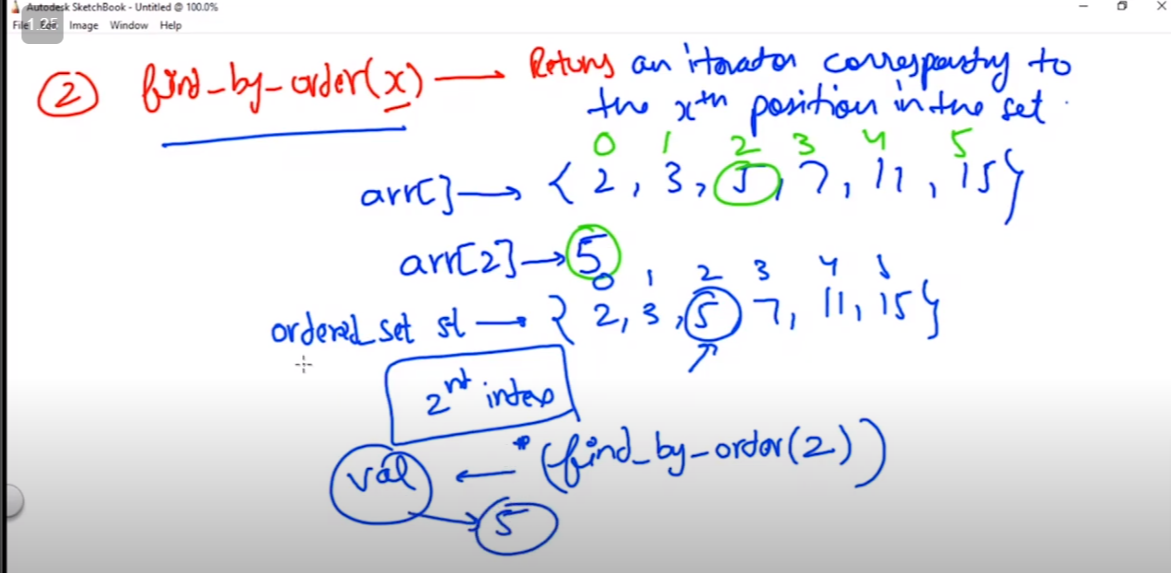 Autodesk SketchBook - Untitled @ 100.0%
File Edit Image Window Help
1.25
2 find_by_order(x) → Returns an iterator corresponding to
the xth position in the set.
0 1 2 3 4 5
arr[] → { 2, 3, 5, 7, 11, 15}
arr[2] → 5
0 1 2 3 4 5
ordered_set st → { 2, 3, 5 7, 11, 15}
2nd index
val ← *(find_by_order(2))
5